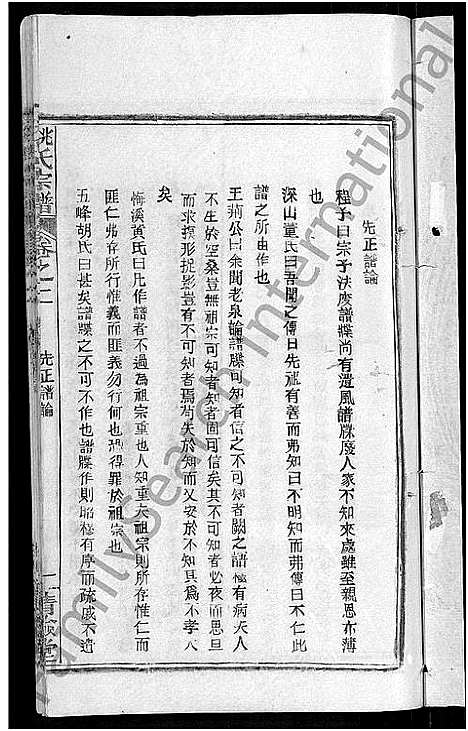 先正譜論
程子曰宗子法廢譜牒尚有遺風譜牒廢人家不知來處雖至親恩亦薄
也
深山董氏曰吾聞之傳曰先祖有善而弗知曰不明知而弗傳曰不仁此
譜之所由作也
王荊公曰余聞老泉論譜牒可知者信之不可知者闕之譜極有病夫人
不生於空桑豈無祖宗可知者知者固可信矣其不可知者必夜而思旦
而求摸形捉影豈有不可知者焉苟失於知而又安於不知其為不孝大
矣
梅溪黃氏曰凡作譜者不過為祖宗重也人知重夫祖宗則所存惟仁而
匪仁弗存所行惟義而匪義勿行何也恐得罪於祖宗也
五峰胡氏曰甚矣譜牒之不可不作也譜牒作則昭穆有序而疏戚不遺
姚氏宗譜
卷之一
先正譜論
一
堂
FamilySearch International